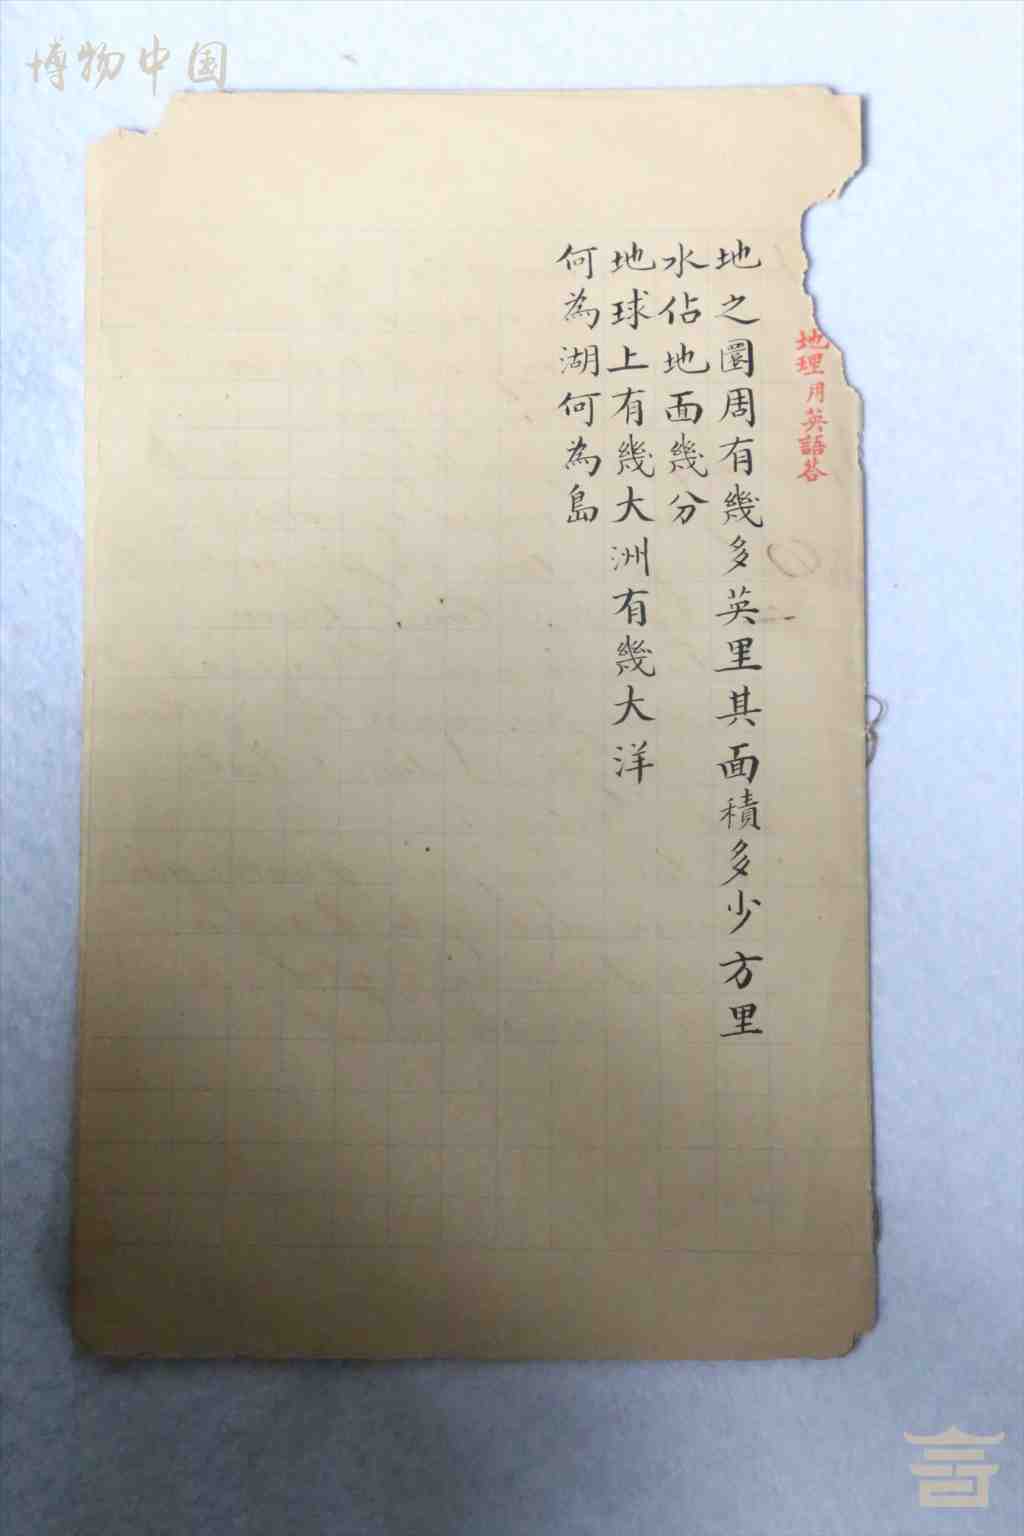 博物中国
地理用英語答
地之圜周有幾多英里其面積多少方里
水佔地面幾分
地球上有幾大洲有幾大洋
何為湖何為島